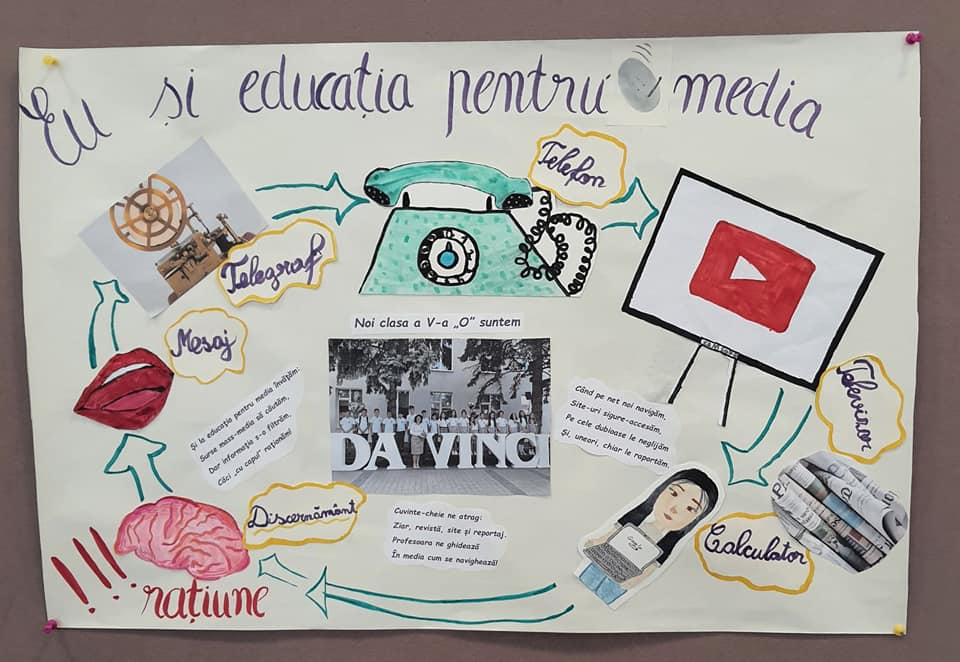 Eu și educația pentru media
Telefon
Telegraf
Mesaj
Noi clasa a V-a „O” suntem
DA VINCI
Și la educație pentru media învățăm:
Surse mass-media să căutăm,
Dar informația s-o filtrăm,
Căci „cu capul” raționăm!
Când pe net noi navigăm,
Site-uri sigure-accesăm,
Pe cele dubioase le neglijăm
Și, uneori, chiar le raportăm.
Televizor
Discernământ
Cuvinte-cheie ne atrag:
Ziar, revistă, site și reportaj.
Profesoara ne ghidează
În media cum se navighează!
Calculator
!!! rațiune